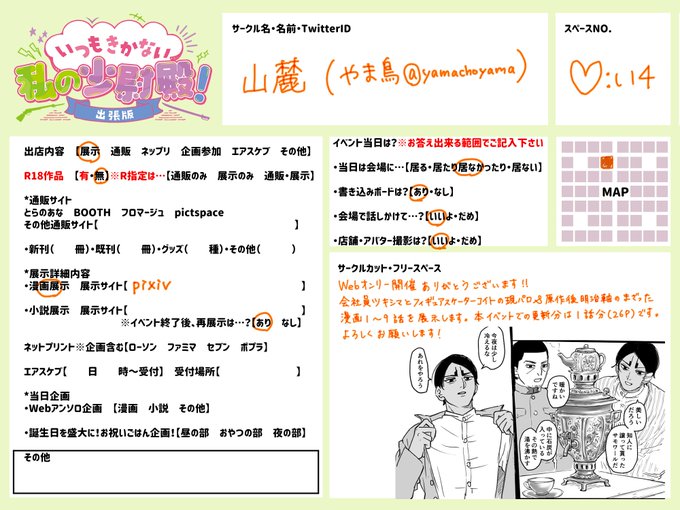 いつもきかない
私の少尉殿!
出張版
サークル名・名前・TwitterID
山麓(やま鳥@yamachoyama)
スペースNO.
♡:い4
出店内容 【展示 通販 ネップリ 企画参加 エアスケブ その他】
R18作品 【有・無】※R指定は…【通販のみ 展示のみ 通販・展示】
*通販サイト
とらのあな BOOTH フロマージュ pictspace
その他通販サイト【 】
・新刊( 冊)・既刊( 冊)・グッズ( 種)・その他( )
*展示詳細内容
・漫画展示 展示サイト【 pixiv 】
・小説展示 展示サイト【 】
※イベント終了後、再展示は…?【あり なし】
ネットプリント※企画含む【ローソン ファミマ セブン ポプラ】
エアスケブ【 日 時〜受付】 受付場所【 】
*当日企画
・Webアンソロ企画 【漫画 小説 その他】
・誕生日を盛大に!お祝いごはん企画!【昼の部 おやつの部 夜の部】
その他
イベント当日は?※お答え出来る範囲でご記入下さい
・当日は会場に…【居る・居たり居なかったり・居ない】
・書き込みボードは?【あり・なし】
・会場で話しかけて…?【いいよ・だめ】
・店舗・アバター撮影は?【いいよ・だめ】
MAP
サークルカット・フリースペース
Webオンリー開催ありがとうございます!!
会社員ツキシマとフィギュアスケーターコイトの現パロと原作後明治軸のまざった
漫画1〜9話を展示します。本イベントでの更新分は1話分(26P)です。
よろしくお願いします!
今夜は少し
冷えるな
あれをやろう
美しい
だろう
知人に
譲って貰った
サモワールだ
暖かい
ですね
中に石炭が
入っている
その熱で
湯を沸かす